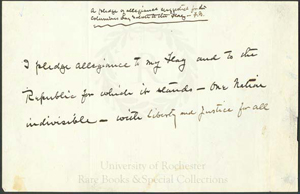 A pledge of allegiance
Columbus Day salute to the Flag
I pledge allegiance to my Flag and to the
Republic for which it stands – One Nation
indivisible – with Liberty and Justice for all
University of Rochester
Rare Books & Special Collections